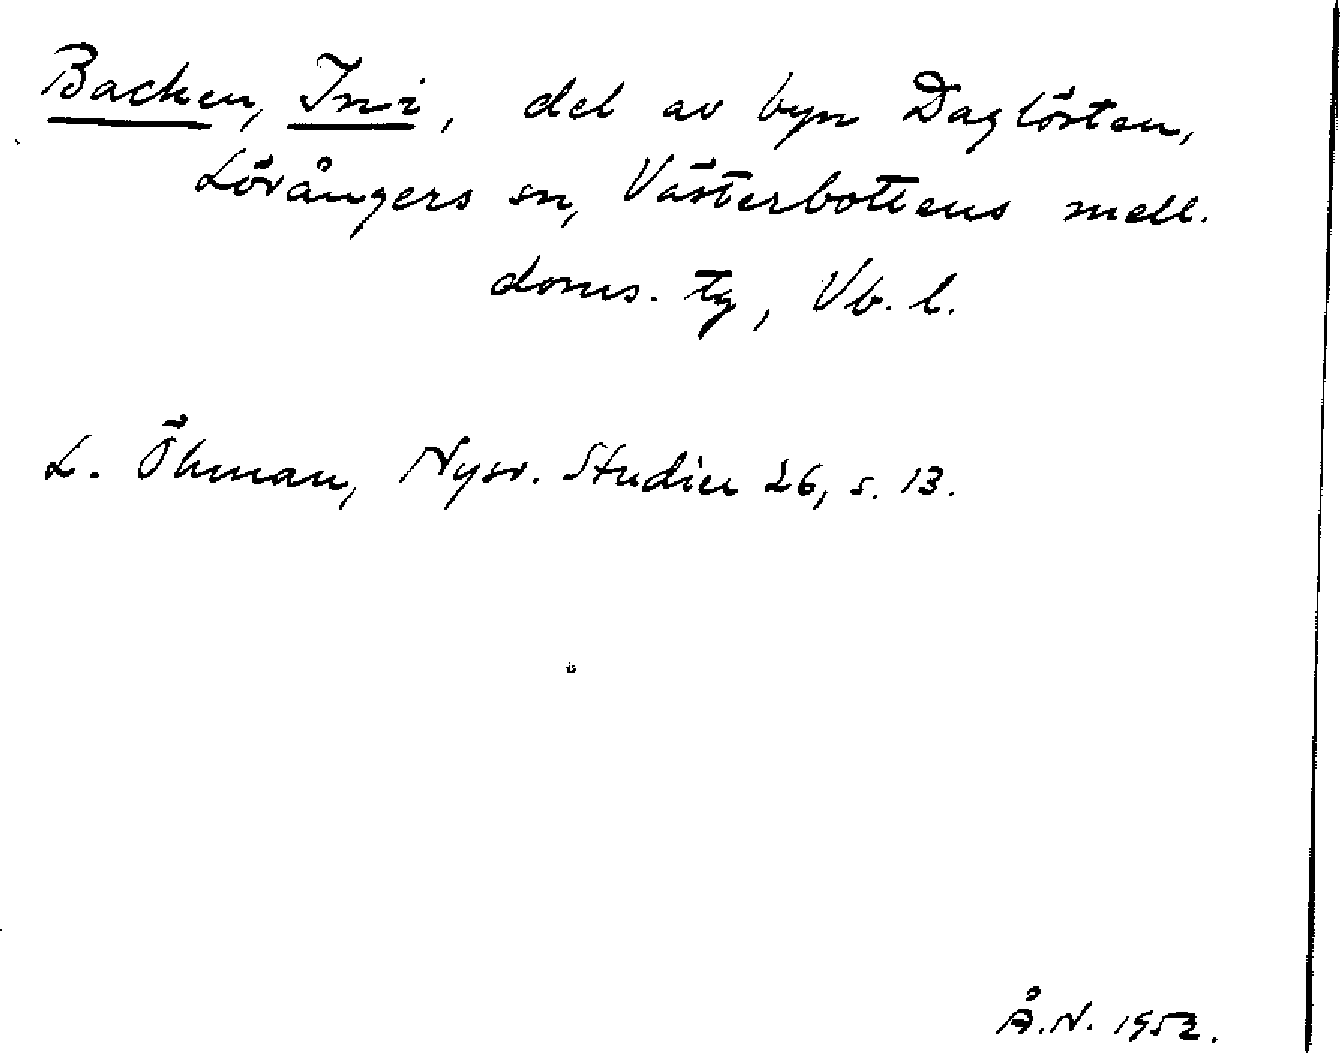 Backen, Ini, del av byn Daglösten,
Lövångers sn, Västerbottens mell.
doms. tg, Vb. l.
L. Öhman, Nysv. Studier 26, s. 13.
Å.N. 1952.